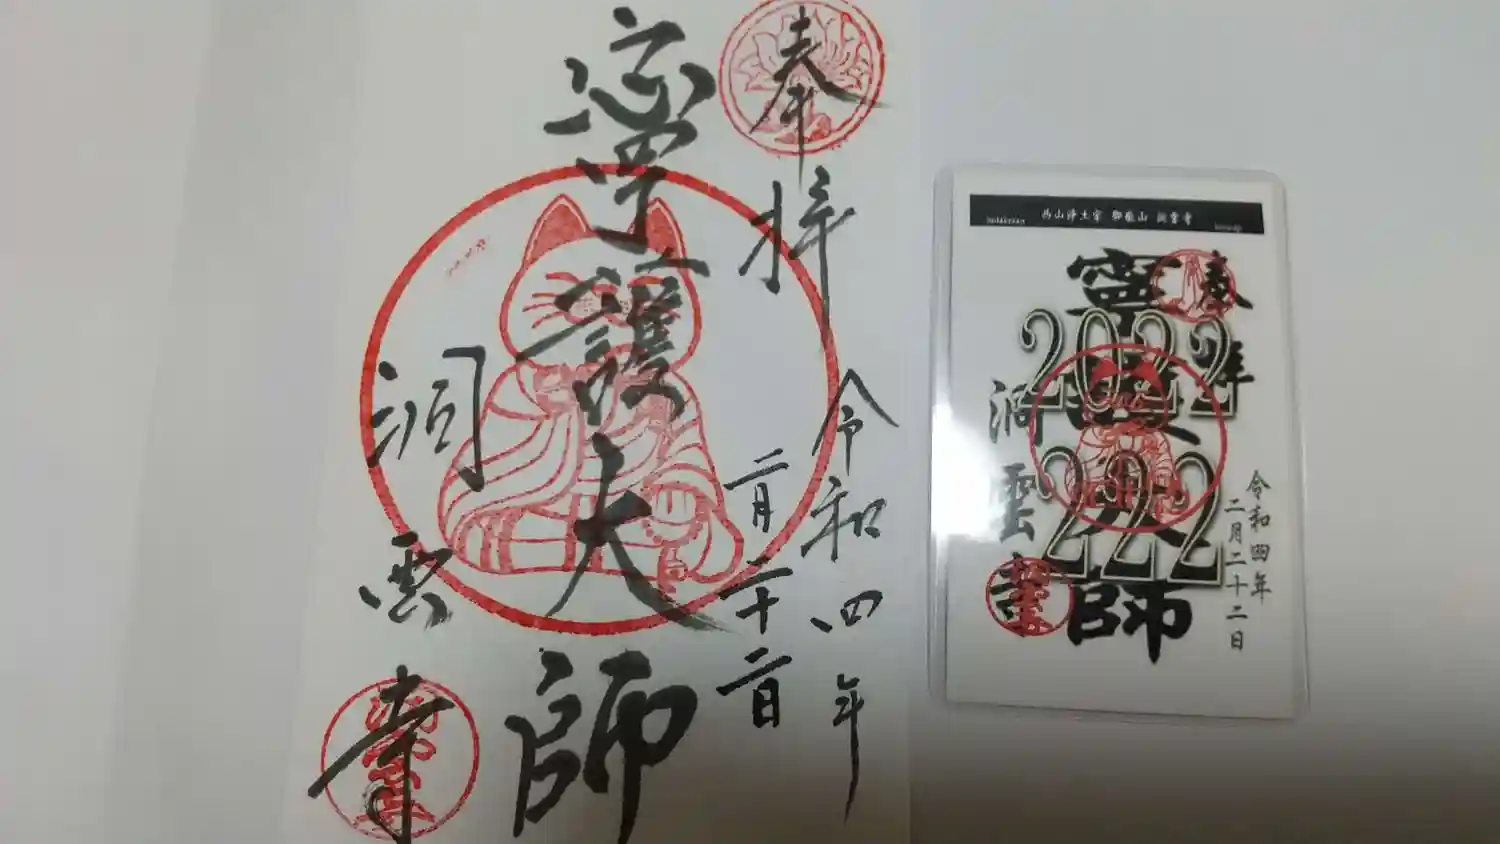 奉拝
令和四年
二月二十二日
寧護大師
洞雲寺
西山浄土宗 御嶽山 洞雲寺
奉拝
2022
222
寧護大師
令和四年
二月二十二日
洞雲寺